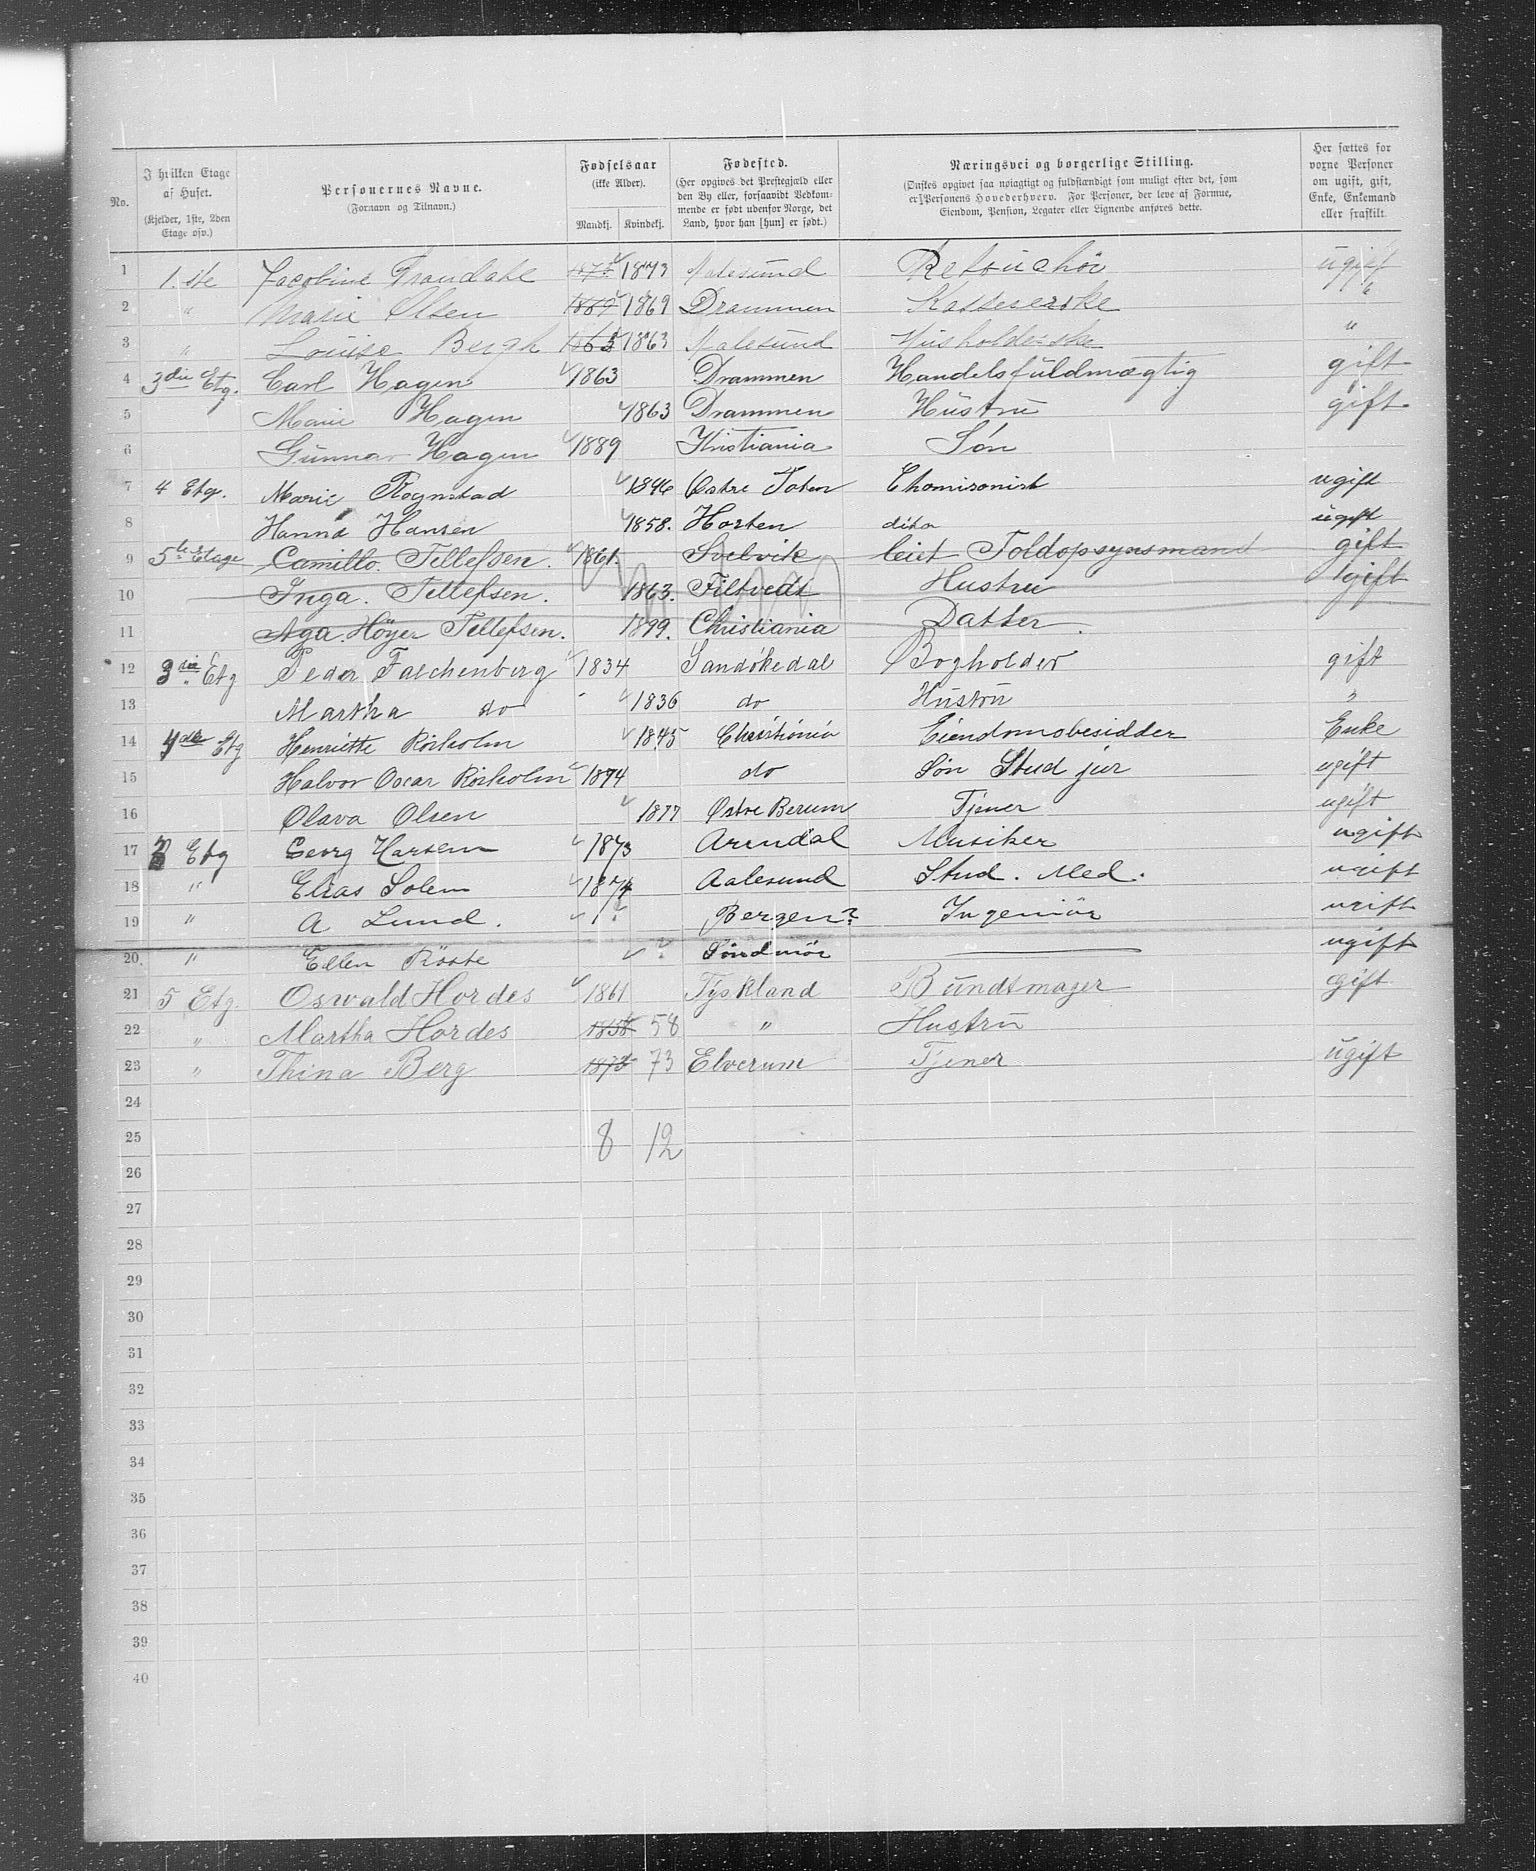 No.
I hvilken Etage af Huset. (Kjelder, 1ste, 2den Etage osv.)
Personernes Navne. (Fornavn og Tilnavn.)
Fødselsaar (ikke Alder). Mandkj. Kvindekj.
Fødested. (Her opgives det Prestegjæld eller den By eller, forsaavidt Vedkommende er født udenfor Norge, det Land, hvor han [hun] er født.)
Næringsvei og borgerlige Stilling. (Ønskes opgivet saa nøiagtigt og fuldstændigt som muligt efter det, som er Personens Hovederhverv. For Personer, der leve af Formue, Eiendom, Pension, Legater eller Lignende anføres dette.)
Her sættes for voxne Personer om ugift, gift, Enke, Enkemand eller fraskilt.
1 1.ste Jacobine Frandahl 1873 Aalesund Retouchör ugift
2 " Marie Olsen 1869 1869 Drammen Kassererske "
3 " Louise Bergh 1863 1863 Aalesund Husholderske "
4 3die Etg. Carl Hagen 1863 Drammen Handelsfuldmægtig gift
5 Marie Hagen 1863 Drammen Hustru gift
6 Gunnar Hagen 1889 Kristiania Søn
7 4 Etg. Marie Rognstad 1846 Østre Toten ugift
8 Hanna Hansen 1858. Horten ditto ugift
9 5te Etage Camillo Tellefsen. 1861. Svelvik Toldopsynsmand gift
10 Inga. Tellefsen. 1863. Filtvedt Hustru gift
11 Aga. Höyer Tellefsen. 1899. Christiania Datter.
12 3die Etg Peder Falchenberg 1834 Sandökedal Bogholder gift
13 Martha do 1836 do Hustru "
14 Etg Henriette Rörholm 1845 Christiania Eiendomsbesidder Enke
15 Halvor Oscar Rörholm 1874 do Søn Stud jur ugift
16 Olava Olsen 1877 Østre Berum Tjener ugift
17 Etg Georg Hansen 1873 Arendal Musiker ugift
18 " Elias Solem 1874 Aalesund Stud. Med. ugift
19 " A Lund. 1 ? Bergen? Ingeniör ugift
20. " Ellen Röste ? Söndmör ugift
21 5 Etg. Oswald Hordes 1861 Tyskland Bundtmager gift
22 " Martha Hordes 1858 58 " Hustru
23 " Thina Berg 1873 73 Elverum Tjener ugift
24
25 8 12
26
27
28
29
30
31
32
33
34
35
36
37
38
39
40